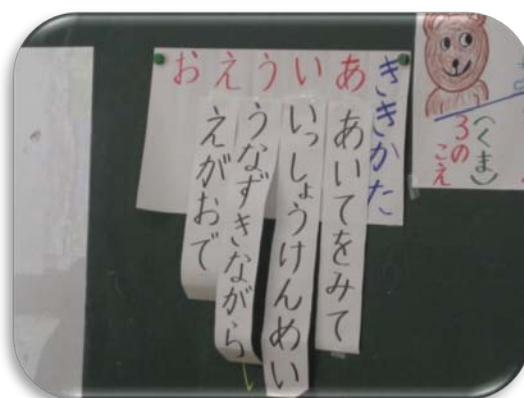 ききかた
あいうえお
あいてをみて
いっしょうけんめい
うなずきながら
えがおで
(くま)
3のこえ